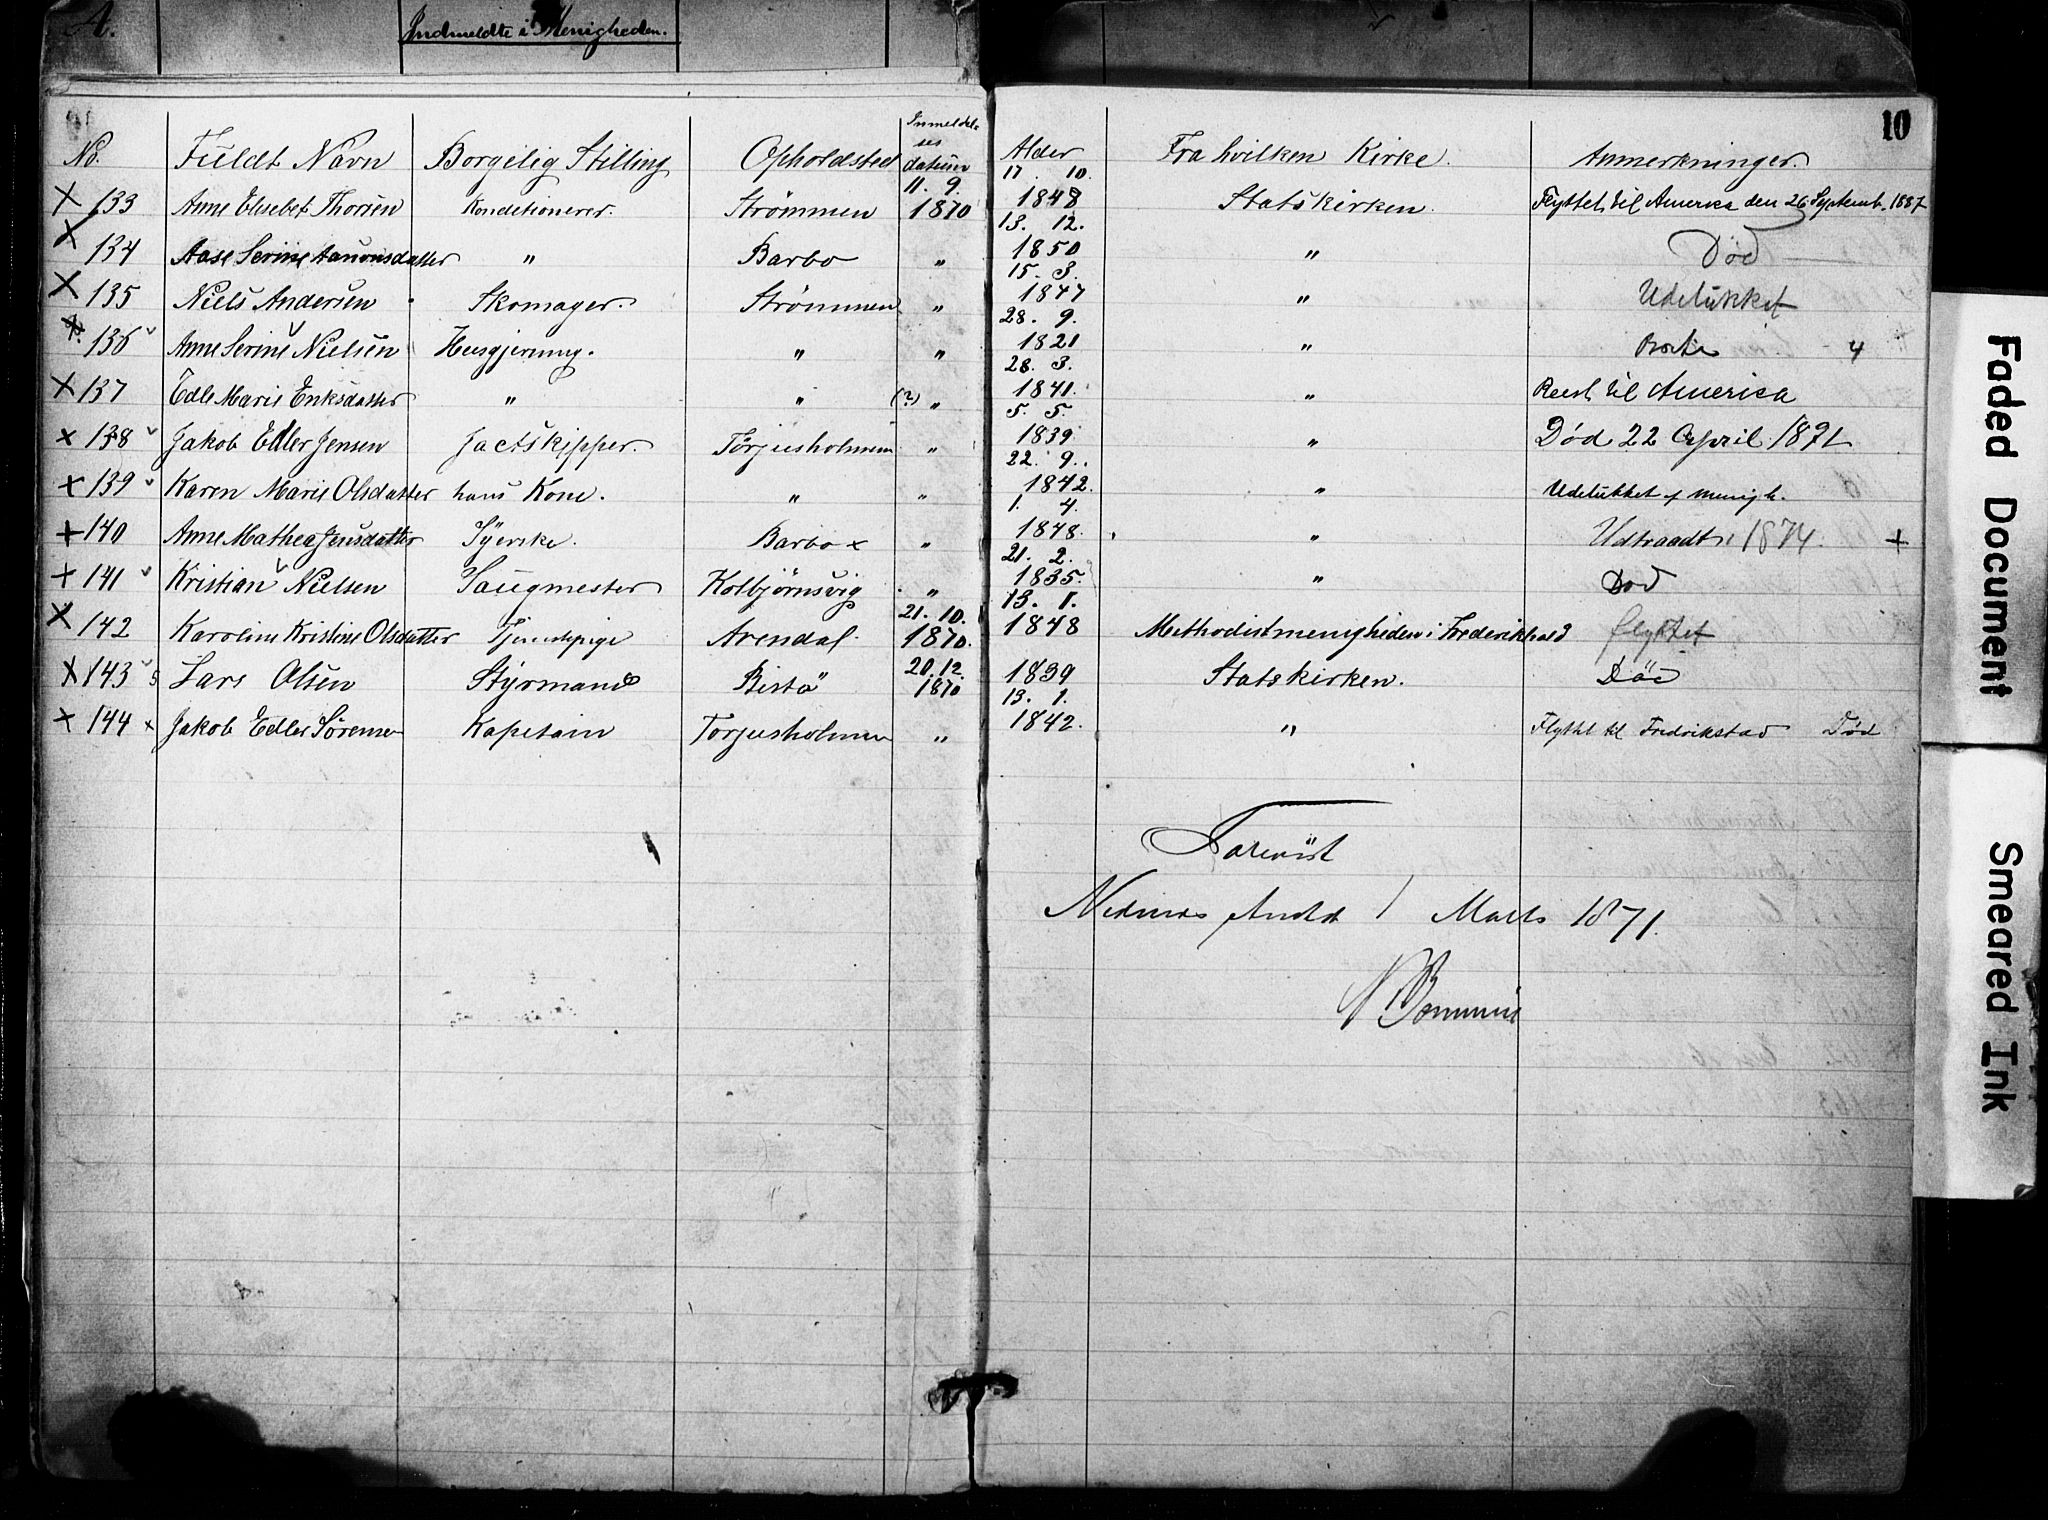 A.
Indmeldte i Menigheden.
10
No. Fuldt Navn Borgelig Stilling Opholdsted Inmeldel-ses datum Alder Fra hvilken Kirke. Anmerkninger.
X 133 Anne Elisebet Thorsen Konditionerer. Strømmen 11. 9. 1870 17. 10. 1848 Statskirken. Flyttet til America den 26 Septemb. 1887
X 134 Aase Serine Aanonsdatter " Barbo " 13. 12. 1850 " Død
X 135 Niels Andersen Skomager. Strømmen " 15. 3. 1847 " Udelukket
X 136 Anne Serine Nielsen Husgjerning. " " 28. 9. 1821 " Borte 4
X 137 Edle Marie Eriksdatter " " (?) " 28. 3. 1841. " Reist til America
x 138 Jakob Edler Jensen Jactskipper. Torjusholmen " 5. 5. 1839 " Død 22 April 1891
x 139 Karen Marie Olsdatter hans Kone. " " 22. 9. 1842. " Udelukket af menigh.
+ 140 Anne Mathea Jensdatter Syerske. Barbo x " 1. 4. 1848. " Udtraadt i 1874. +
+ 141 Kristian Nielsen Saugmester Kolbjørnsvig " 21. 2. 1835. " Død
X 142 Karoline Kristine Olsdatter Tjenestepige Arendal. 21. 10. 1870. 13. 1. 1848 Methodistmenigheden i Frederikhald flyttet
X 143 5 Lars Olsen Styrmand Bistø 20. 12. 1870 1839 Statskirken. Død
x 144 x Jakob Edler Sørensen Kapetain Torjusholmen " 13. 1. 1842. " Flyttet til Fredrikstad Død
Forevist
Nedenes Amt d 1 Marts 1871.
Faded Document
Smeared Ink